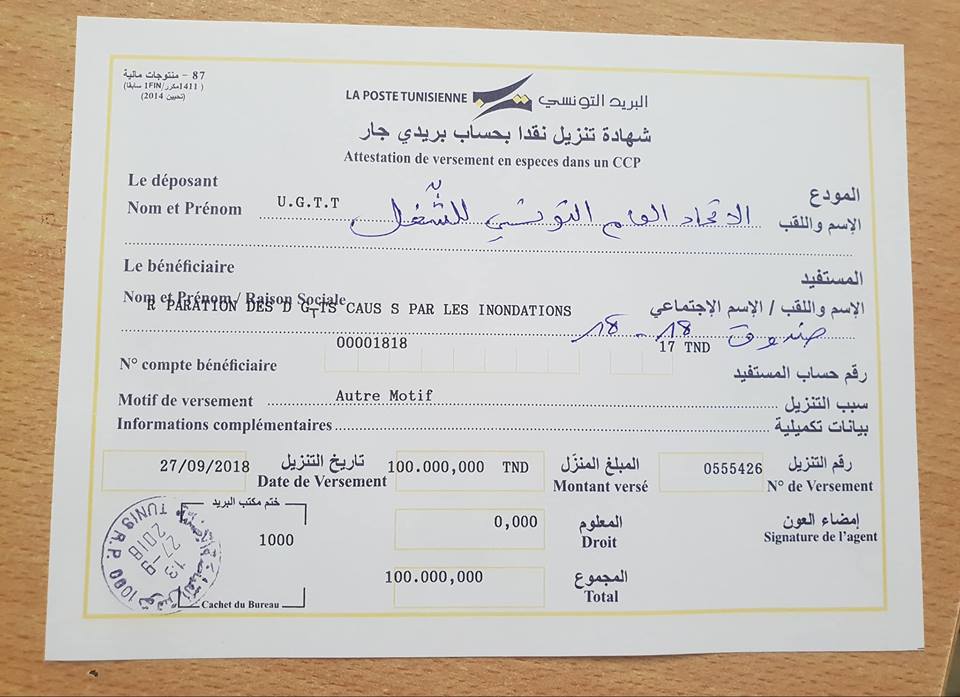 87 - منتوجات مالية
(1411مكرر/1FIN سابقا)
(تحيين 2014)
LA POSTE TUNISIENNE البريد التونسي
شهادة تنزيل نقدا بحساب بريدي جار
Attestation de versement en especes dans un CCP
Le déposant المودع
Nom et Prénom U.G.T.T الاتحاد العام التونسي للشّغل الإسم واللقب
Le bénéficiaire المستفيد
Nom et Prénom / Raison Sociale الإسم واللقب / الإسم الإجتماعي
R PARATION DES D G TS CAUS S PAR LES INONDATIONS
صندوق 18 - 18
00001818 17 TND
N° compte bénéficiaire رقم حساب المستفيد
Motif de versement Autre Motif سبب التنزيل
Informations complémentaires بيانات تكميلية
27/09/2018 تاريخ التنزيل 100.000,000 TND المبلغ المنزّل 0555426 رقم التنزيل
Date de Versement Montant versé N° de Versement
ختم مكتب البريد 0,000 المعلوم إمضاء العون
1000 Droit Signature de l'agent
100.000,000 المجموع
Cachet du Bureau Total
TUNIS R.P. 1000
13
27 9
2018